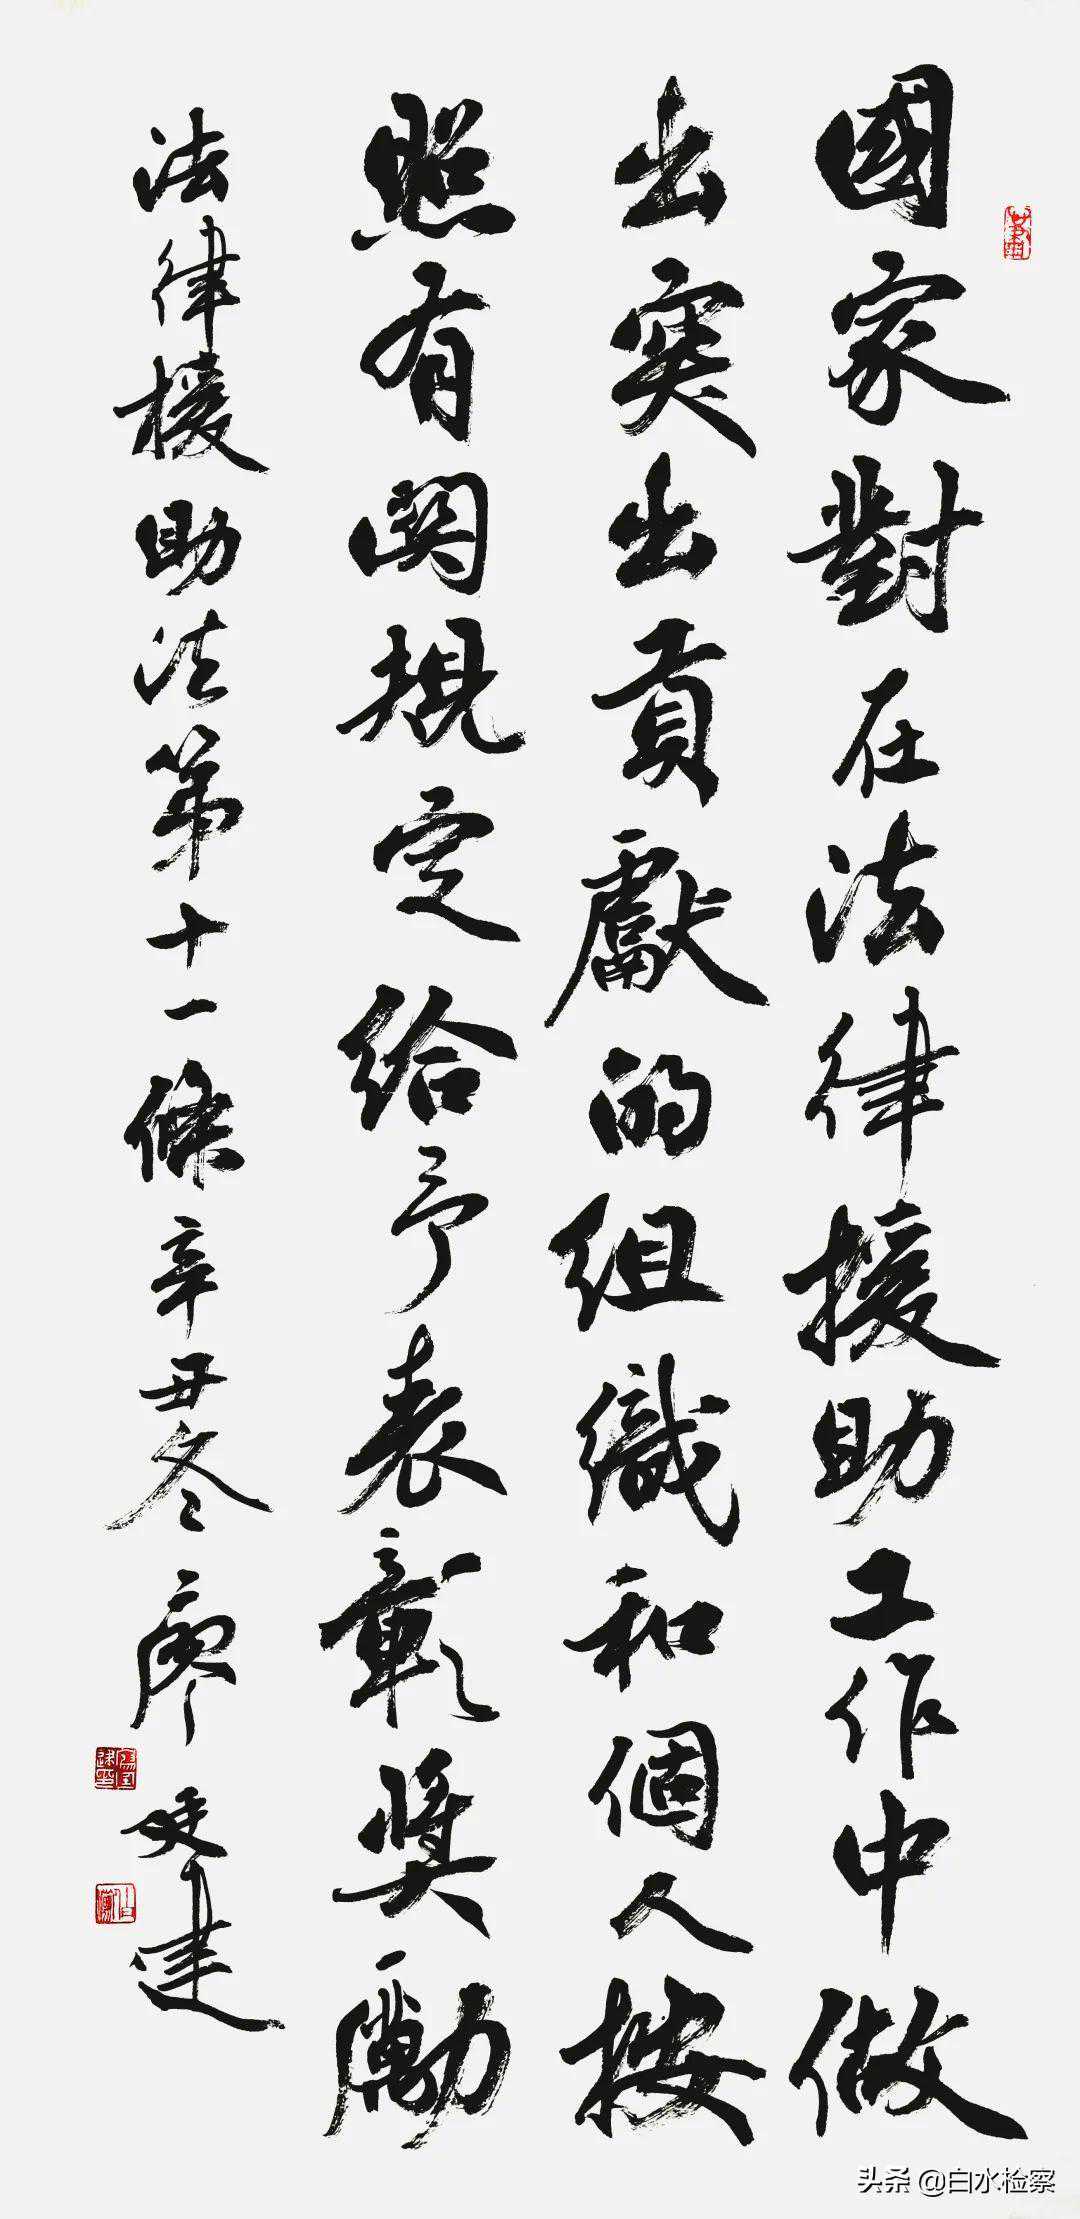 國家對在法律援助工作中做
出突出貢獻的組織和個人按
照有關規定給予表彰獎勵
法律援助法第十一條辛丑冬廖建
头条 @白水检察